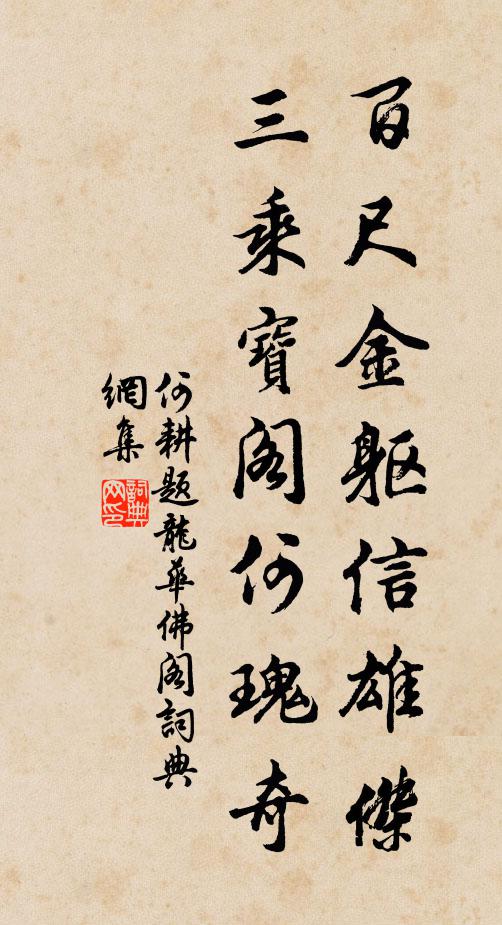 百尺金軀信雄傑
三乘寶閣何瑰奇
何耕題龍華佛閣詞典
網集
詞典网印